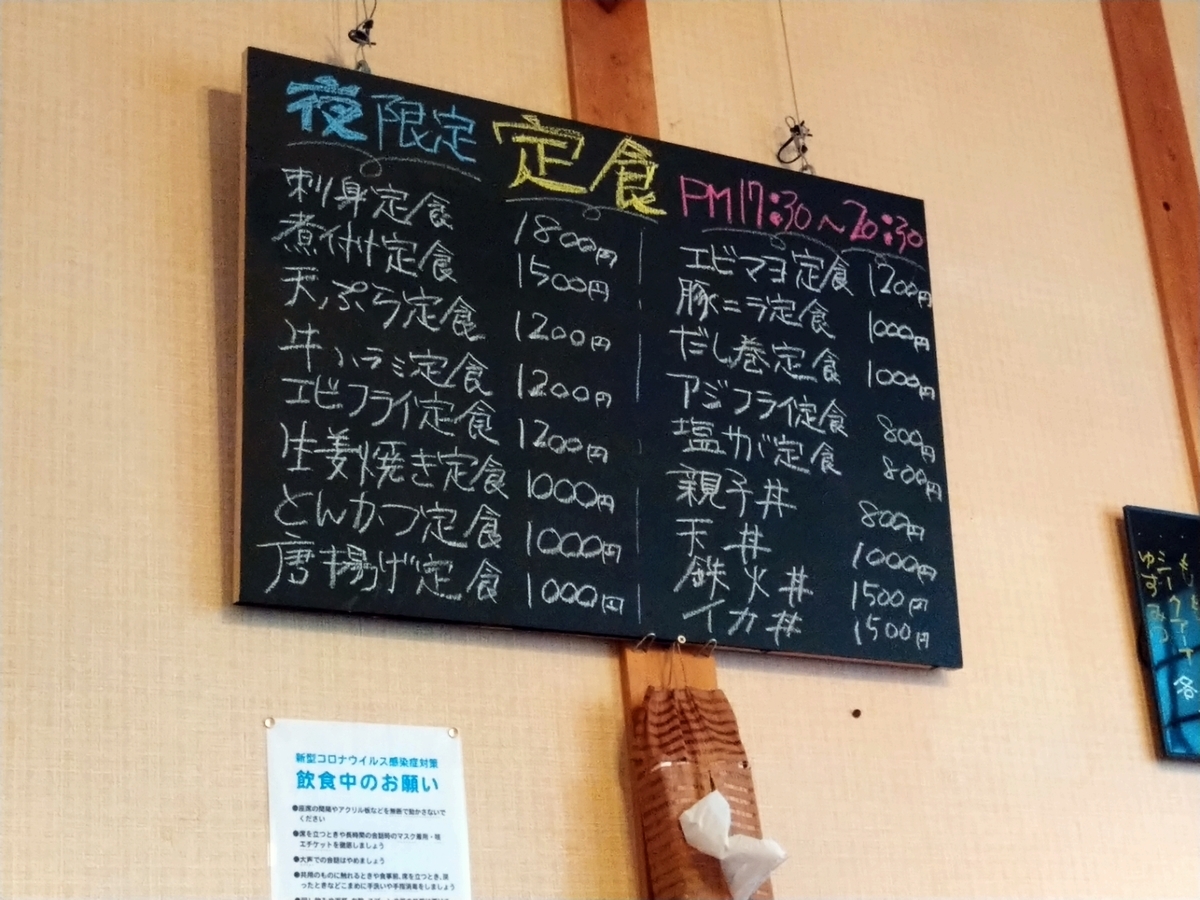 夜限定 定食 PM17:30~20:30
刺身定食 1800円
煮付け定食 1500円
天ぷら定食 1200円
牛ハラミ定食 1200円
エビフライ定食 1200円
生姜焼き定食 1000円
とんかつ定食 1000円
唐揚げ定食 1000円
エビマヨ定食 1200円
豚ニラ定食 1000円
だし巻定食 1000円
アジフライ定食 800円
塩サバ定食 800円
親子丼 800円
天丼 1000円
鉄火丼 1500円
イカ丼 1500円
新型コロナウイルス感染症対策
飲食中のお願い
●座席の間隔やアクリル板などを無断で動かさないで
ください
●席を立つときや長時間の会話時のマスク着用・咳
エチケットを徹底しましょう
●大声での会話はやめましょう
●共用のものに触れるときや食事前、席を立つとき、戻
ったときなどこまめに手洗いや手指消毒をしましょう